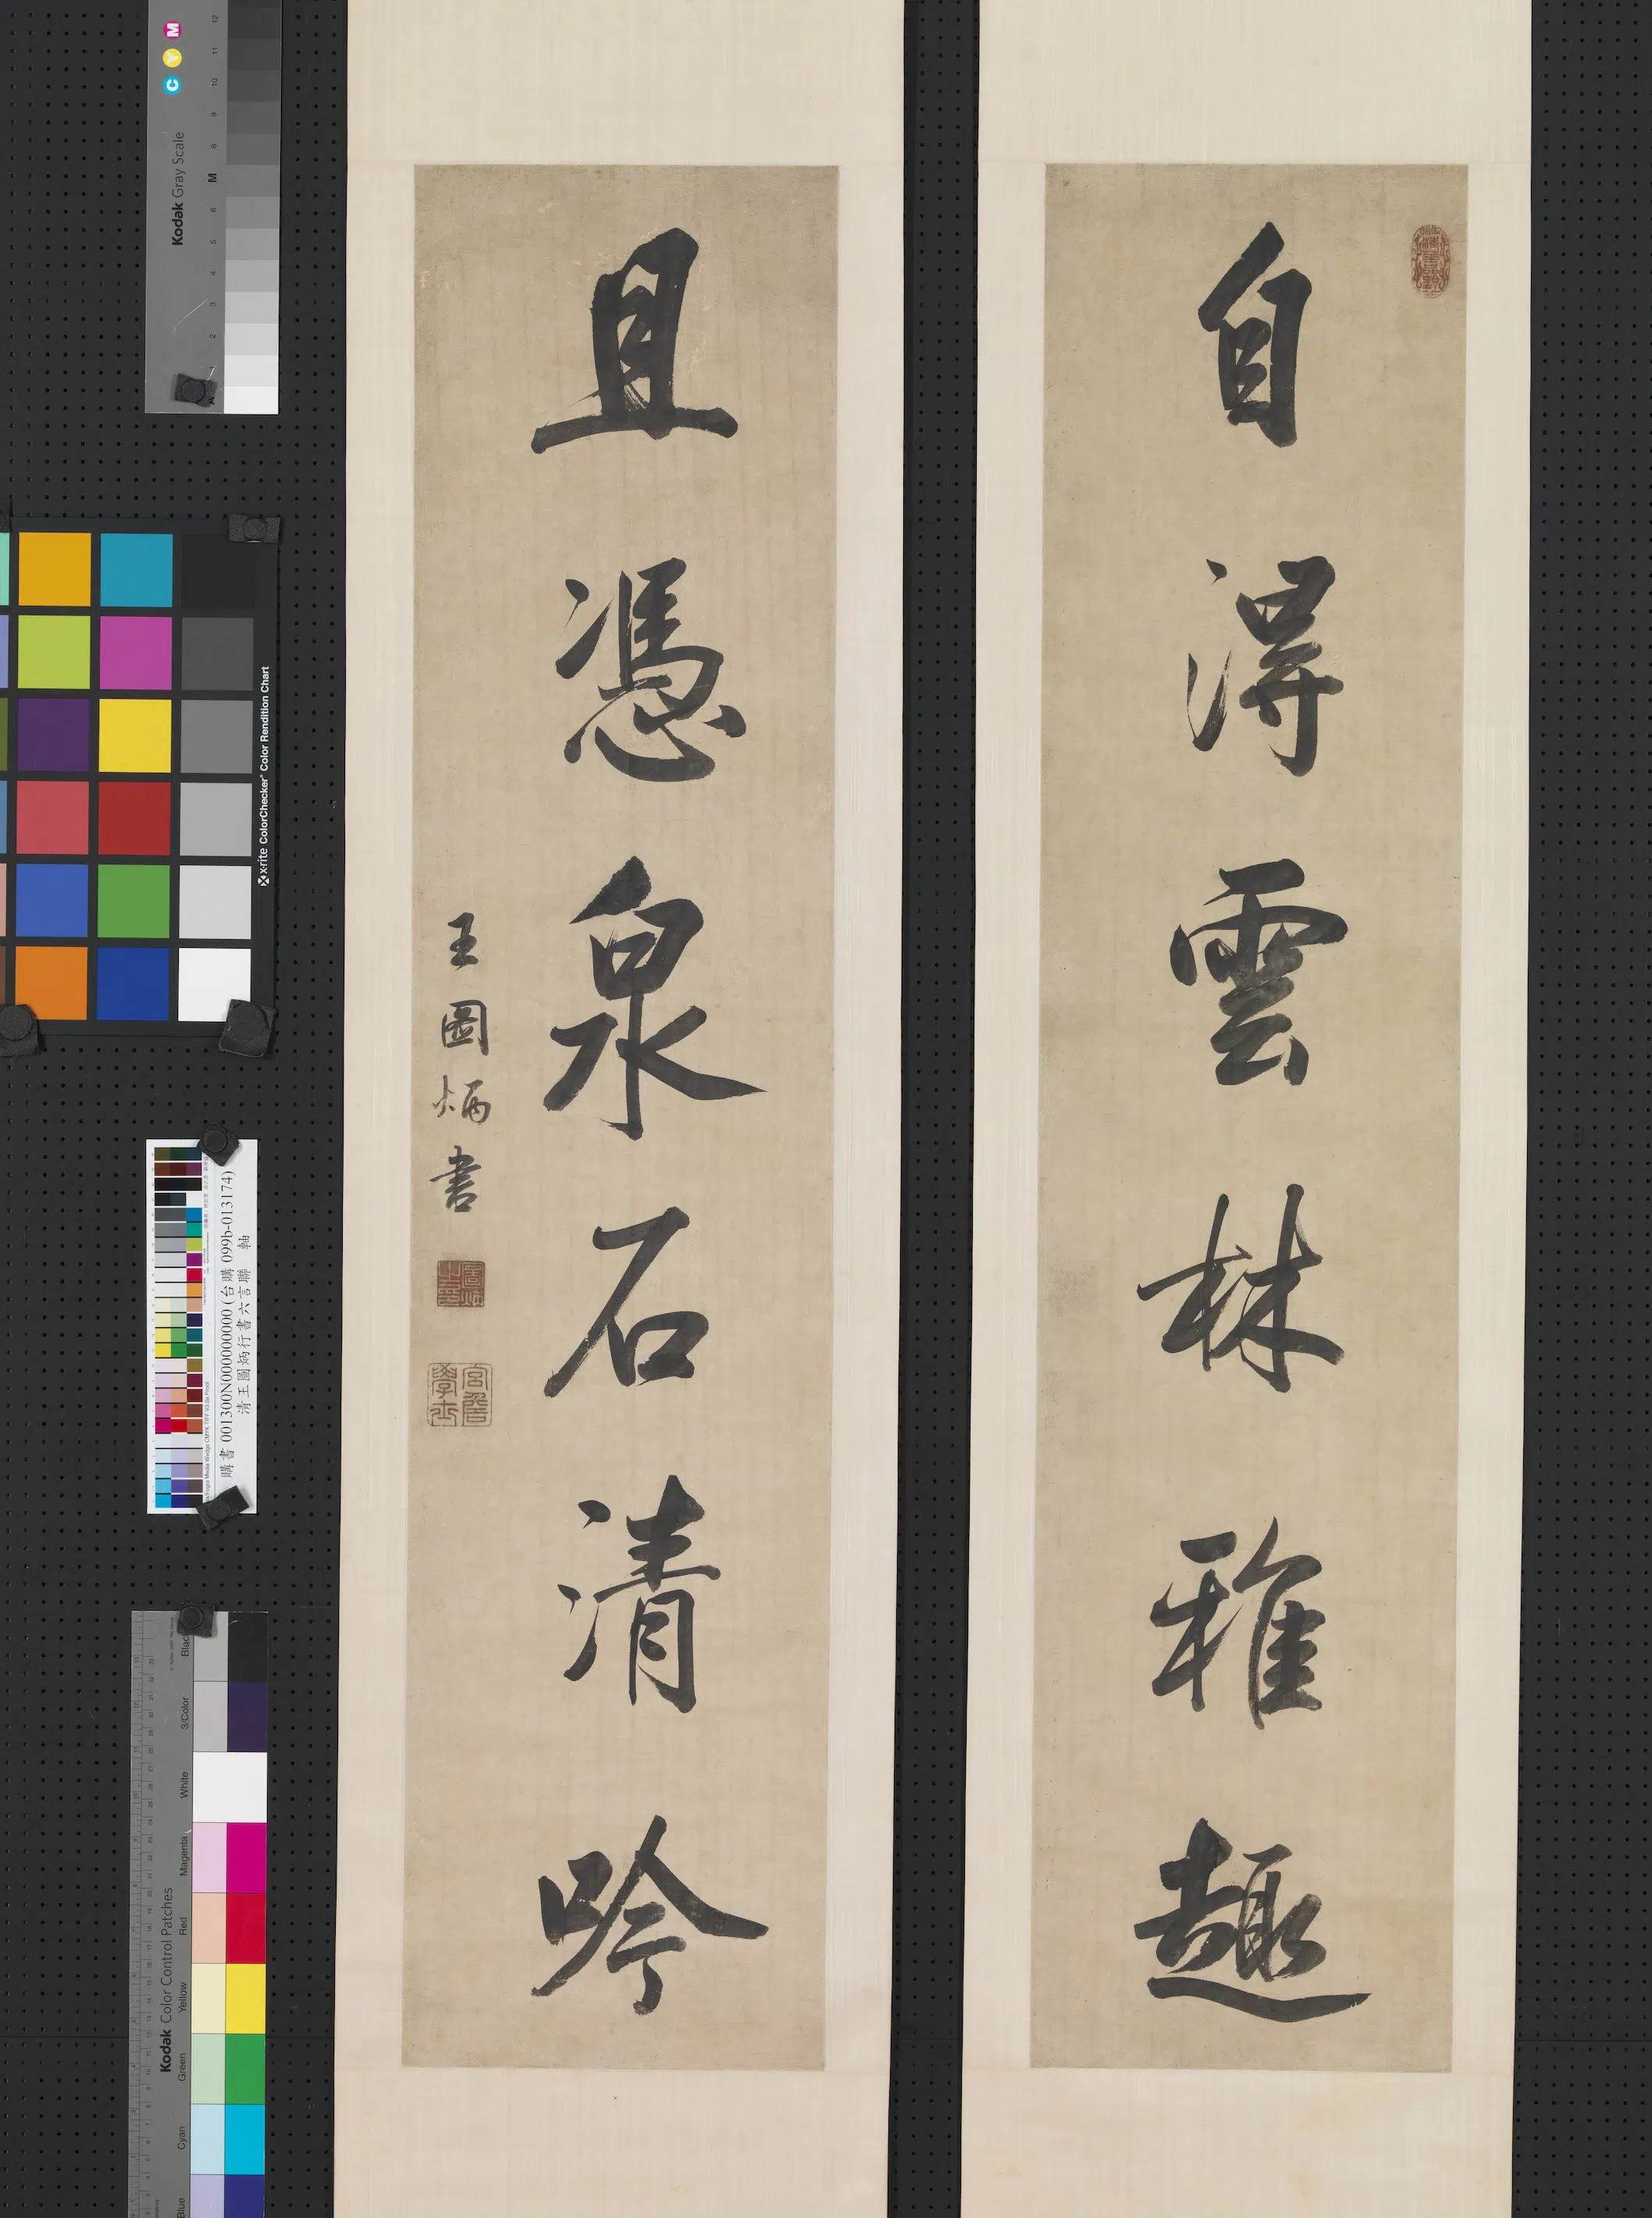 自得雲林雅趣
且憑泉石清吟
王圖炳書
圖炳之印
宮詹學士
購書 001300N000000000 (台購 099b-013174)
清王圖炳行書六言聯 軸
Kodak Gray Scale
C Y M
A 1 2 3 4 5 6 M 8 9 10 11 12
x-rite ColorChecker Color Rendition Chart
Kodak Color Control Patches
Blue Cyan Green Yellow Red Magenta White 3/Color Black